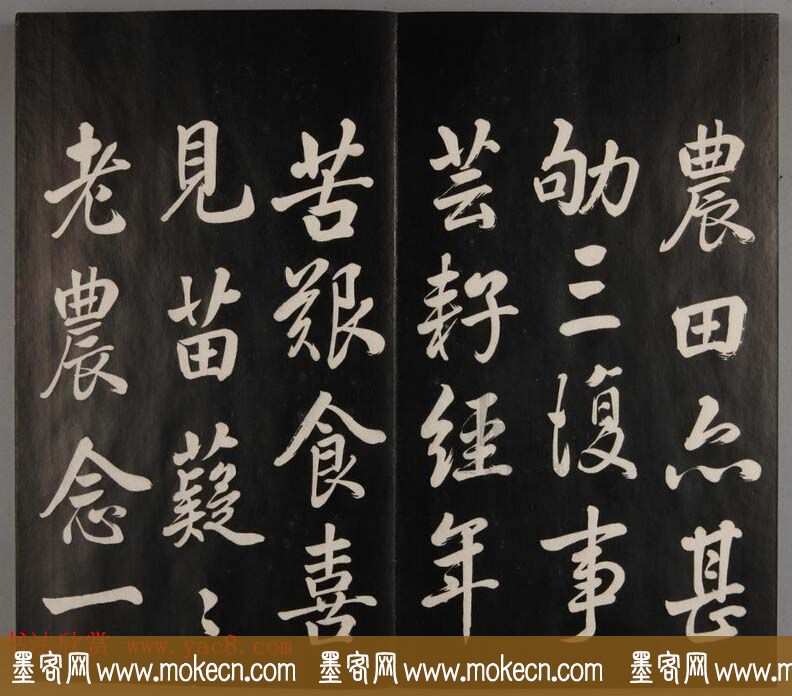 農田亦甚
劬三復事
芸耔經年
苦艱食喜
見苗薿〻
老農念一
书法欣赏 www.yac8.com
墨客网 www.mokecn.com 墨客网 www.mokecn.com 墨客网 www.m